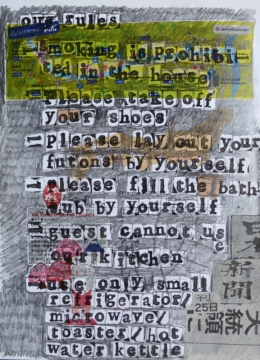 our rules
smoking is prohibi-
ted in the house
Please take off
your shoes
Please lay out your
futons by yourself
Please fill the bath
tub by yourself
guest cannot use
our kitchen
use only small
refrigerator/
microwave/
toaster/hot
water kettle
日本
新聞
25日
大統領